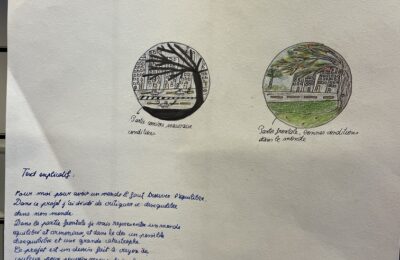 Parte arrière, mauvaise
conditions
Partie frontale, bonnes conditions
dans le monde
Text explicatif:
Pour moi pour avoir un monde il faut trouver l'équilibre.
Dans ce projet j'ai décidé de critiquer le disequilibre
dans mon monde.
Dans la partie frontale je vais représenter un monde
equilibré et armonieux, et dans le dos un possible
disequilibre et une grande catastrophe.
Ce projet est un dessin fait le crayon de
couleur pour